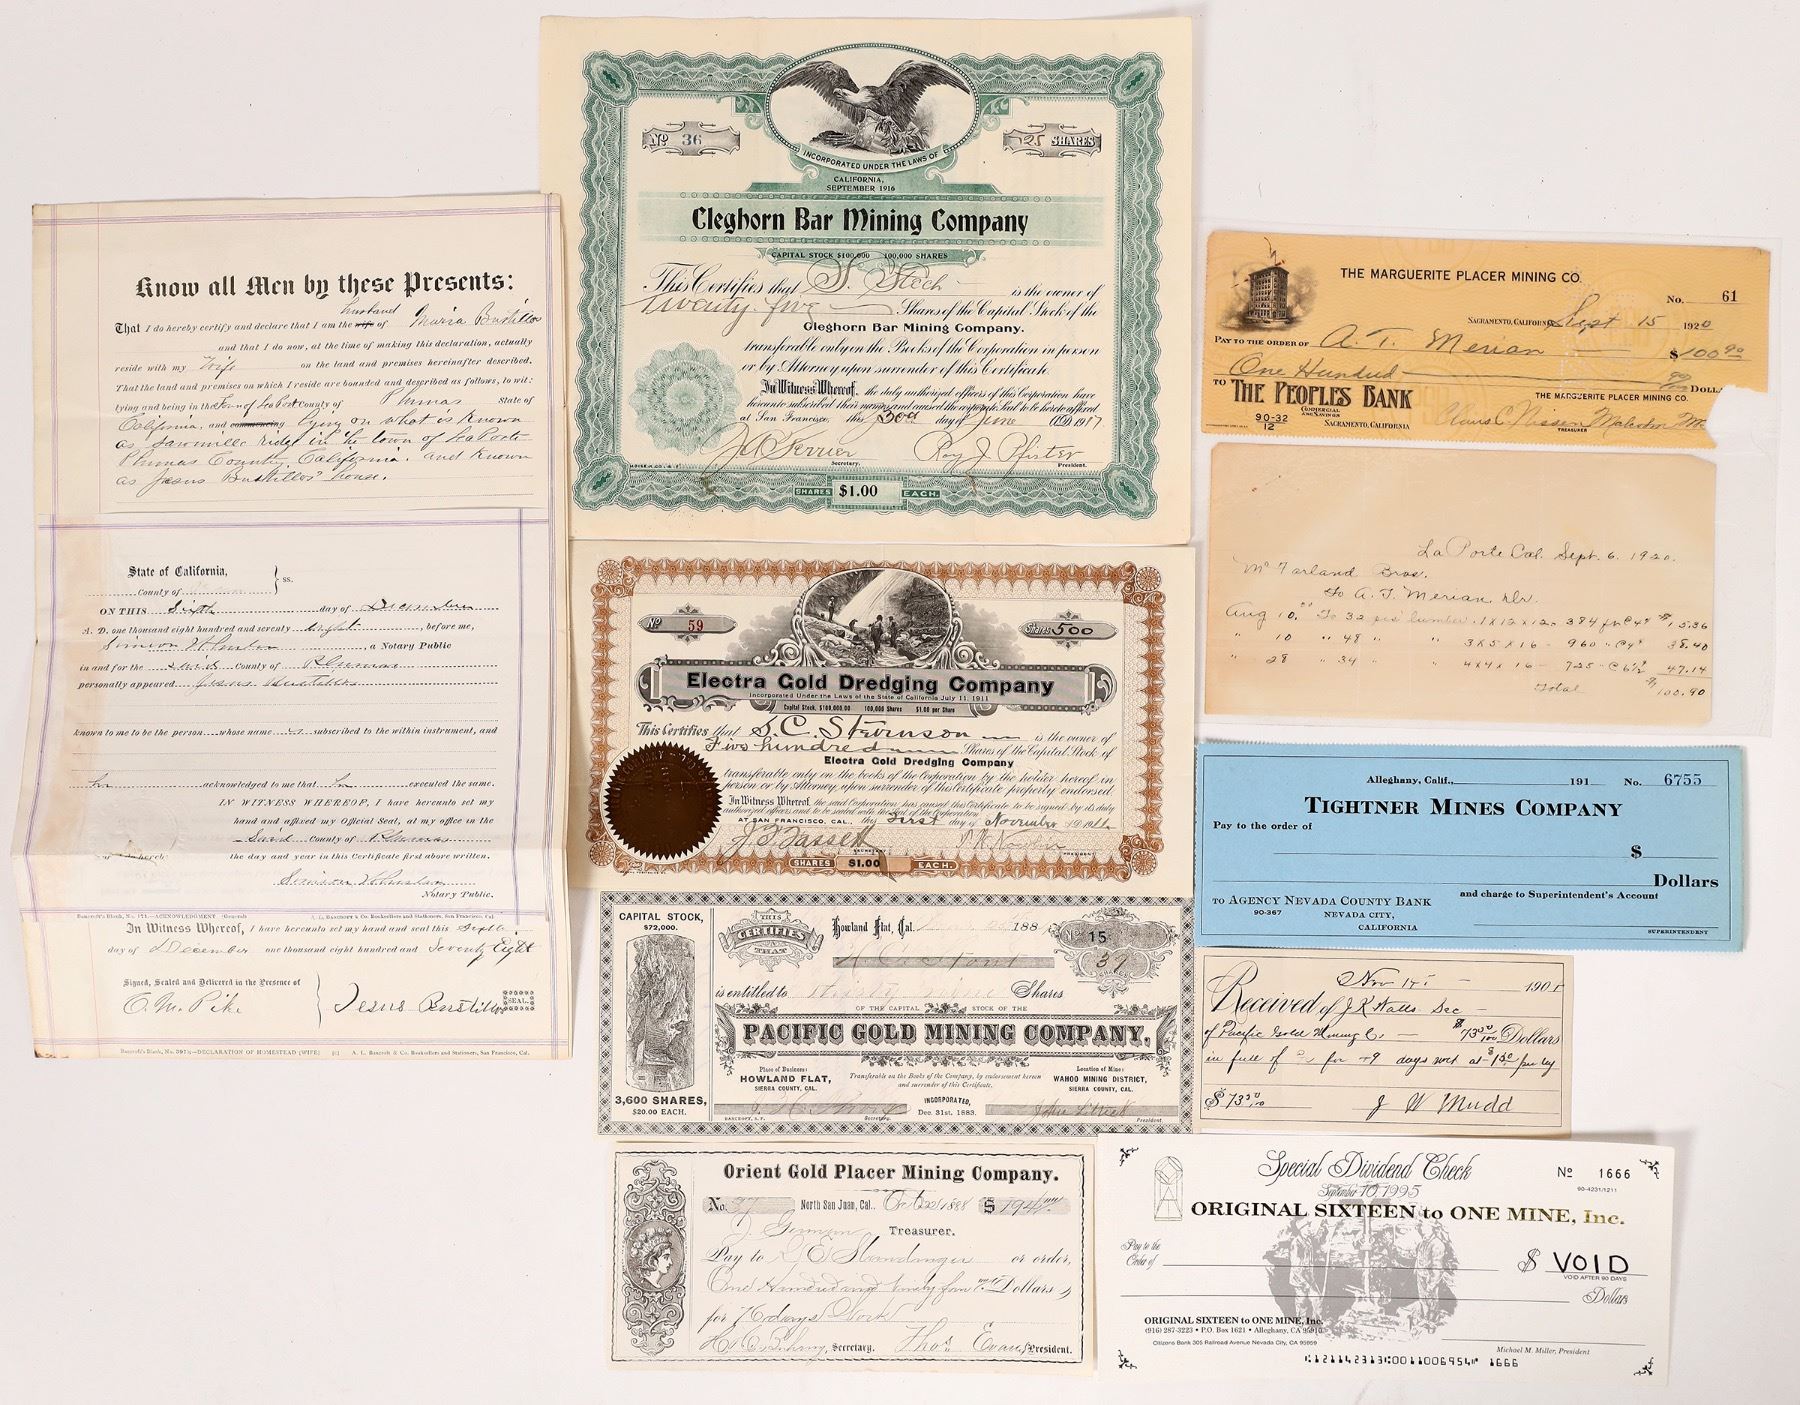 Know all Men by these Presents:
husband
That I do hereby certify and declare that I am the wife of Maria Bustillos
and that I do now, at the time of making this declaration, actually
reside with my Wife on the land and premises hereinafter described.
That the land and premises on which I reside are bounded and described as follows, to wit:
lying and being in the Town of La Porte County of Plumas State of
California, and commencing lying on what is known
as Sawmill ridge in the town of La Porte
Plumas County, California. and known
as Jesus Bustillos' house.
State of California,
County of
ss.
ON THIS Sixth day of December
A. D. one thousand eight hundred and seventy eight, before me,
a Notary Public
in and for the said County of Plumas
personally appeared Jesus Bustillos
known to me to be the person whose name is subscribed to the within instrument, and
he acknowledged to me that he executed the same.
IN WITNESS WHEREOF, I have hereunto set my
hand and affixed my Official Seal, at my office in the
Said County of Plumas
the day and year in this Certificate first above written.
Notary Public.
Bancroft's Blank, No. 171.—ACKNOWLEDGMENT (General) A. L. Bancroft & Co. Booksellers and Stationers, San Francisco, Cal.
In Witness Whereof, I have hereunto set my hand and seal this Sixth
day of December one thousand eight hundred and Seventy Eight
Signed, Sealed and Delivered in the Presence of
O. M. Pike
Jesus Bustillos
SEAL
DECLARATION OF HOMESTEAD (WIFE) A. L. Bancroft & Co. Booksellers and Stationers, San Francisco, Cal.
No 36
25 SHARES
INCORPORATED UNDER THE LAWS OF
CALIFORNIA,
SEPTEMBER 1916
Cleghorn Bar Mining Company
CAPITAL STOCK $100,000 100,000 SHARES
This Certifies that S. Stech is the owner of
Twenty five Shares of the Capital Stock of the
Cleghorn Bar Mining Company.
transferable only on the Books of the Corporation in person
or by Attorney upon surrender of this Certificate.
In Witness Whereof, the duly authorized officers of this Corporation have
hereunto subscribed their names and caused the corporate Seal to be hereto affixed
at San Francisco, this 30th day of June A.D. 1917
J. A. Ferrier
Secretary.
Roy J. Pfister
President.
SHARES $1.00 EACH.
No 59
Shares 500
Electra Gold Dredging Company
Incorporated Under the Laws of the State of California July 11, 1911
Capital Stock, $100,000.00 100,000 Shares $1.00 per Share
This Certifies that S. C. Stevenson is the owner of
Five hundred Shares of the Capital Stock of
Electra Gold Dredging Company
transferable only on the books of the Corporation by the holder hereof in
person or by Attorney, upon surrender of this Certificate properly endorsed.
In Witness Whereof, the said Corporation has caused this Certificate to be signed by its duly
authorized officers and to be sealed with the Seal of the Corporation
AT SAN FRANCISCO, CAL., this First day of November A.D. 1911
SECRETARY
PRESIDENT
SHARES $1.00 EACH.
CAPITAL STOCK,
$72,000.
3,600 SHARES,
$20.00 EACH.
THIS
CERTIFIES
THAT
Howland Flat, Cal. 188
No 15
39
SHARES
is entitled to Thirty nine Shares
OF THE CAPITAL STOCK OF THE
PACIFIC GOLD MINING COMPANY,
Place of Business:
HOWLAND FLAT,
SIERRA COUNTY, CAL.
Transferable on the Books of the Company, by endorsement hereon
and surrender of this Certificate.
Location of Mine:
WAHOO MINING DISTRICT,
SIERRA COUNTY, CAL.
INCORPORATED,
Dec. 31st, 1883.
BANCROFT, S. F.
Secretary.
President
Orient Gold Placer Mining Company.
No. 37 North San Juan, Cal., Oct 22d 1888 $194
J. German Treasurer.
Pay to or order,
One Hundred and Ninety four Dollars
for 76 days Work
Secretary. Thos. Evans President.
THE MARGUERITE PLACER MINING CO.
No. 61
SACRAMENTO, CALIFORNIA Sept 15 1920
PAY TO THE ORDER OF A. T. Merian $100.90
One Hundred 90/100 DOLLARS
TO THE PEOPLES BANK
COMMERCIAL
AND SAVINGS
90-32
12
SACRAMENTO, CALIFORNIA
THE MARGUERITE PLACER MINING CO.
Claus C. Nissen
TREASURER
La Porte Cal. Sept. 6. 1920.
McFarland Bros.
To A. T. Merian, Dr.
Aug 10. To 32 pcs lumber. 1 x 12 x 12 384 ft @ 4¢ $15.36
" 10 " 48 " " 3 x 5 x 16 - 960 " @ 4¢ 38.40
" 28 " 34 " " 4 x 4 x 16 - 725 " @ 6½¢ 47.14
Total $100.90
Alleghany, Calif., 191 No. 6755
TIGHTNER MINES COMPANY
Pay to the order of
$
Dollars
TO AGENCY NEVADA COUNTY BANK
90-367
NEVADA CITY,
CALIFORNIA
and charge to Superintendent's Account
SUPERINTENDENT
Nov 1st 1901
Received of J. R. Walls Sec
of Pacific Gold Mining Co. $73 50/100 Dollars
in full of for 49 days work at $1.50 per day
$73.50/100
J W Mudd
Special Dividend Check
September 10, 1995
No 1666
90-4231/1211
ORIGINAL SIXTEEN to ONE MINE, Inc.
Pay to the
Order of
$ VOID
VOID AFTER 90 DAYS
Dollars
ORIGINAL SIXTEEN to ONE MINE, Inc.
(916) 287-3223 • P.O. Box 1621 • Alleghany, CA 95910
Citizens Bank 305 Railroad Avenue Nevada City, CA 95959
Michael M. Miller, President
⑆121142313⑆0011006954⑈ 1666